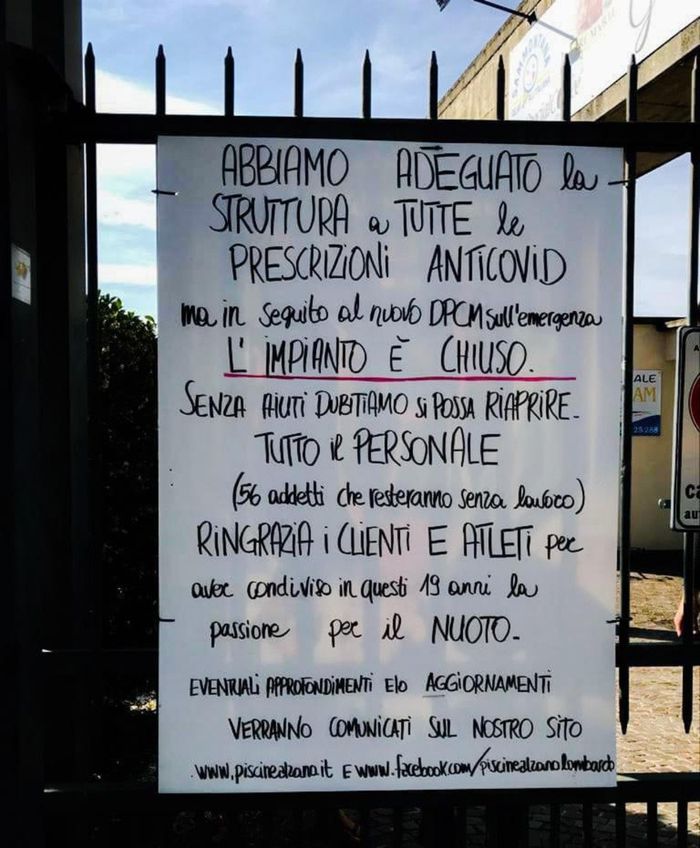 ABBIAMO ADEGUATO la
STRUTTURA a TUTTE le
PRESCRIZIONI ANTICOVID
ma in seguito al nuovo DPCM sull'emergenza
L'IMPIANTO È CHIUSO.
SENZA AIUTI DUBITIAMO si POSSA RIAPRIRE.
TUTTO il PERSONALE
(56 addetti che resteranno senza lavoro)
RINGRAZIA i CLIENTI E ATLETI per
aver condiviso in questi 19 anni la
passione per il NUOTO.
EVENTUALI APPROFONDIMENTI E/o AGGIORNAMENTI
VERRANNO COMUNICATI SUL NOSTRO SITO
www.piscinealzano.it E www.facebook.com/piscinealzanolombardo
ALE
AM